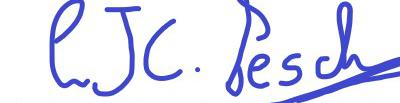 h.JC. Pesch